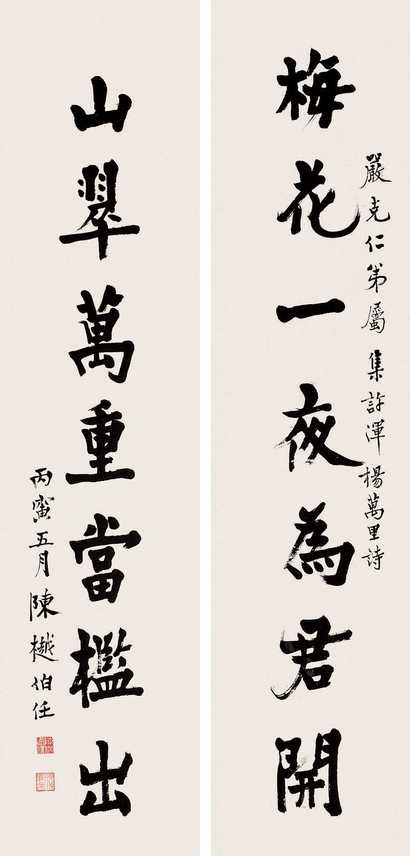 嚴克仁弟屬 集許渾楊萬里詩
梅花一夜為君開
山翠萬重當檻出
丙寅五月 陳樾伯任